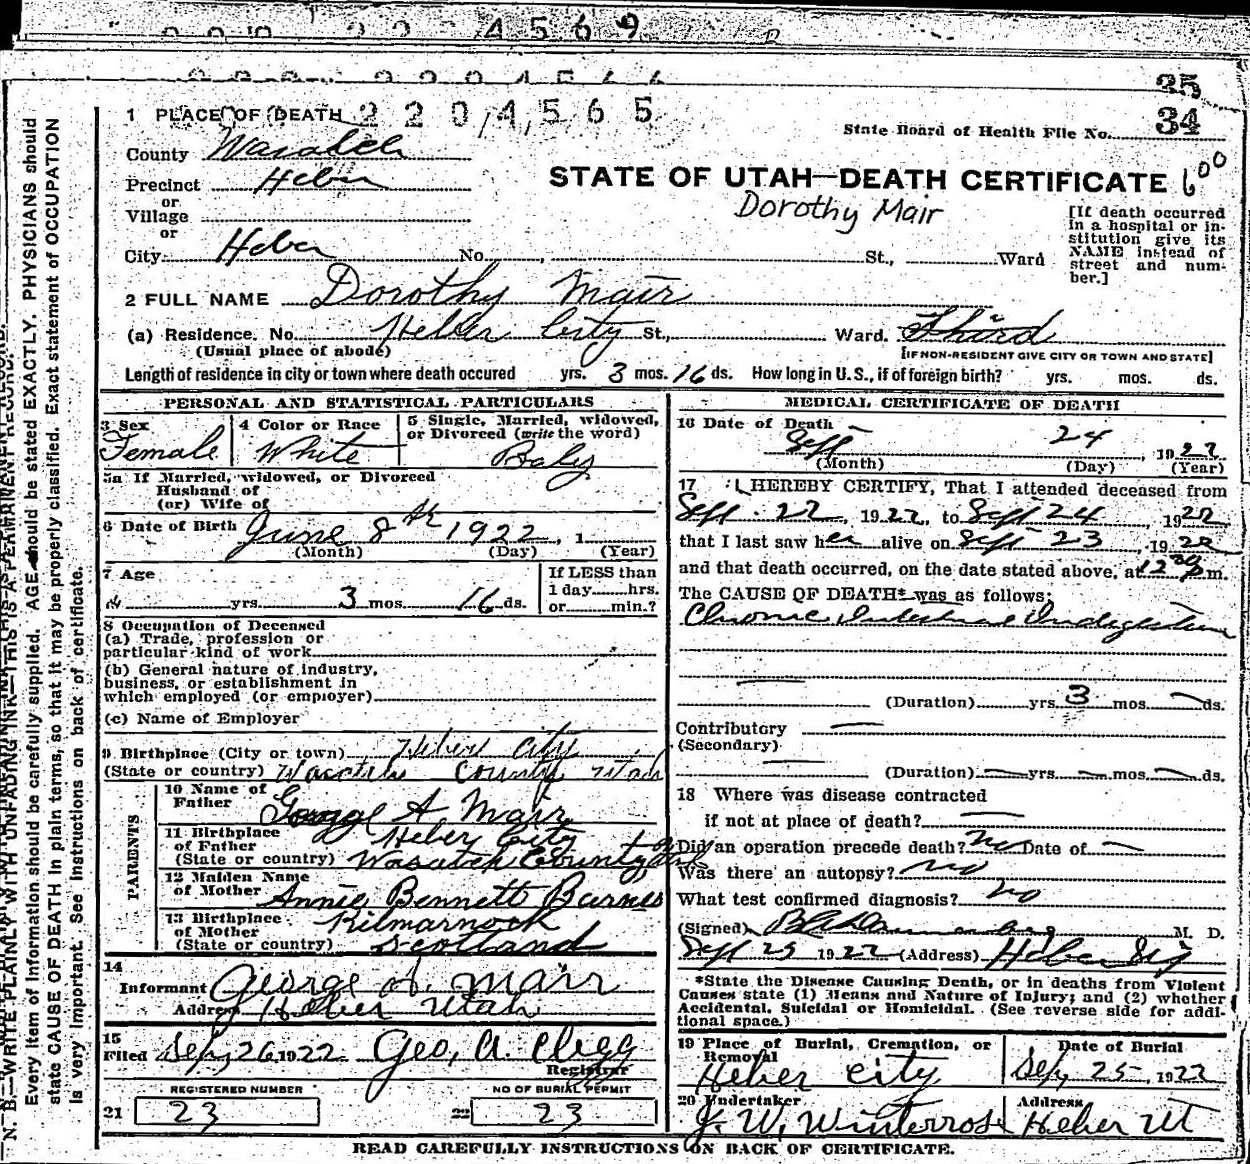 4 5 6 9
35
1 PLACE OF DEATH 2 2 0 4 5 6 5
State Board of Health File No. 34
County Wasatch
STATE OF UTAH—DEATH CERTIFICATE 600
Precinct Heber
Dorothy Mair
or
Village
or
City Heber No. , St., Ward
[If death occurred in a hospital or in-
stitution give its
NAME instead of
street and num-
ber.]
2 FULL NAME Dorothy Mair
(a) Residence. No. Heber City St., Ward. Third
(Usual place of abode) [IF NON-RESIDENT GIVE CITY OR TOWN AND STATE]
Length of residence in city or town where death occured yrs. 3 mos. 16 ds. How long in U.S., if of foreign birth? yrs. mos. ds.
PERSONAL AND STATISTICAL PARTICULARS
3 Sex Female
4 Color or Race White
5 Single, Married, widowed, or Divorced (write the word) Baby
5a If Married, widowed, or Divorced
Husband of
(or) Wife of
6 Date of Birth June 8th 1922, 1
(Month) (Day) (Year)
7 Age
yrs. 3 mos. 16 ds.
If LESS than
1 day hrs.
or min.?
8 Occupation of Deceased
(a) Trade, profession or
particular kind of work
(b) General nature of industry,
business, or establishment in
which employed (or employer)
(c) Name of Employer
9 Birthplace (City or town) Heber City
(State or country) Wasatch County Utah
PARENTS
10 Name of Father George A Mair
11 Birthplace of Father Heber City
(State or country) Wasatch County
12 Maiden Name of Mother Annie Bennett Barnes
13 Birthplace of Mother Kilmarnock
(State or country) Scotland
14
Informant George A. Mair
Address Heber Utah
15
Filed Sep, 26, 1922 Geo, A. Clegg
Registrar
REGISTERED NUMBER NO OF BURIAL PERMIT
21 23 22 23
MEDICAL CERTIFICATE OF DEATH
16 Date of Death
Sept 24, 1922
(Month) (Day) (Year)
17 I HEREBY CERTIFY, That I attended deceased from
Sept. 22, 1922, to Sept 24 1922
that I last saw her alive on Sept 23, 1922
and that death occurred, on the date stated above, at 12 30 p m.
The CAUSE OF DEATH* was as follows:
Chronic Intestinal Indigestion
(Duration) yrs 3 mos ds.
Contributory
(Secondary)
(Duration) yrs mos ds.
18 Where was disease contracted
if not at place of death?
Did an operation precede death? no Date of
Was there an autopsy? no
What test confirmed diagnosis? no
(Signed) M. D.
Sept 25 1922 (Address) Heber
*State the Disease Causing Death, or in deaths from Violent
Causes state (1) Means and Nature of Injury; and (2) whether
Accidental, Suicidal or Homicidal. (See reverse side for addi-
tional space.)
19 Place of Burial, Cremation, or Removal
Heber City
Date of Burial
Sep, 25, 1922
20 Undertaker
J. W. Winterrose
Address
Heber Ut
READ CAREFULLY INSTRUCTIONS ON BACK OF CERTIFICATE.
N. B.—WRITE PLAINLY WITH UNFADING INK—THIS IS A PERMANENT RECORD.
Every item of Information should be carefully supplied. AGE should be stated EXACTLY. PHYSICIANS should
state CAUSE OF DEATH in plain terms, so that it may be properly classified. Exact statement of OCCUPATION
is very Important. See instructions on back of certificate.